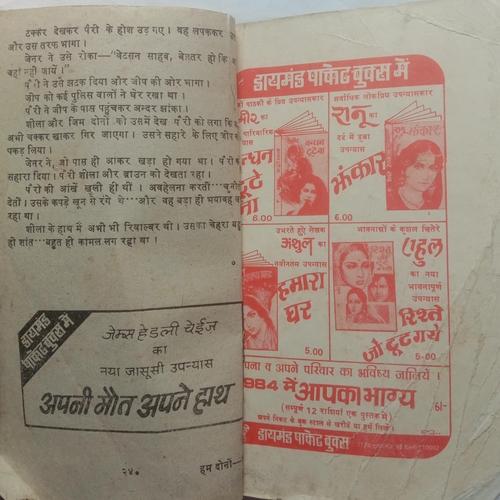 टक्कर देखकर पैरी के होश उड़ गए। वह लपककर
और उस तरफ भागा।
जेनर ने उसे रोका—"वेटसन साहब, बेहतर हो कि
वहां नहीं जायें।"
पैरी ने उसे झटक दिया और जीप की ओर भागा।
जीप को कई पुलिस वालों ने घेर रखा था।
पैरी ने जीप के पास पहुंचकर अन्दर झांका।
शीला और जिम दोनों को उसमें देख पैरी को लगा कि
अभी चक्कर खाकर गिर जाएगा। उसने सहारे के लिए जीप
पकड़ लिया।
जेनर ने, जो पास ही आकर खड़ा हो गया था। पैरी
सहारा दिया। पैरी शीला और ब्राउन को देखता रहा।
पैरी की आंखें खुली ही थीं। अवहेलना करती···चुनौ
देतीं। उसके कपड़े खून से रंगे थे···और वह बड़ा ही भयावह
रहा था।
शीला के हाथ में अभी भी रिवाल्वर थी। उसका चेहरा
ही शांत···बहुत ही कोमल लग रहा था।
डायमंड
पाकेट बुक्स में
जेम्स हेडली चेईज
का
नया जासूसी उपन्यास
अपनी मौत अपने हाथ
२४०
हम दोनों—
डायमंड पाकेट बुक्स में
के प्रिय उपन्यासकार
पारिवारिक
उपन्यास
टूटे
ना
6.00
सर्वाधिक लोकप्रिय उपन्यासकार
रानू का
दर्द में डूबा
उपन्यास
झंकार
6.00
उभरते हुए लेखक
अंशुल का
नवीनतम उपन्यास
हमारा
घर
5.00
भावनाओं के कुशल चितेरे
राहुल
का नया
भावनापूर्ण
उपन्यास
रिश्ते
जो टूट गये
5.00
पना व अपने परिवार का भविष्य जानिये।
984 में आपका भाग्य
(सम्पूर्ण 12 राशियां एक पुस्तक में)
6/-
अपने निकट के बुक स्टाल से खरीदें या हमें लिखें।
डायमंड पाकेट बुक्स